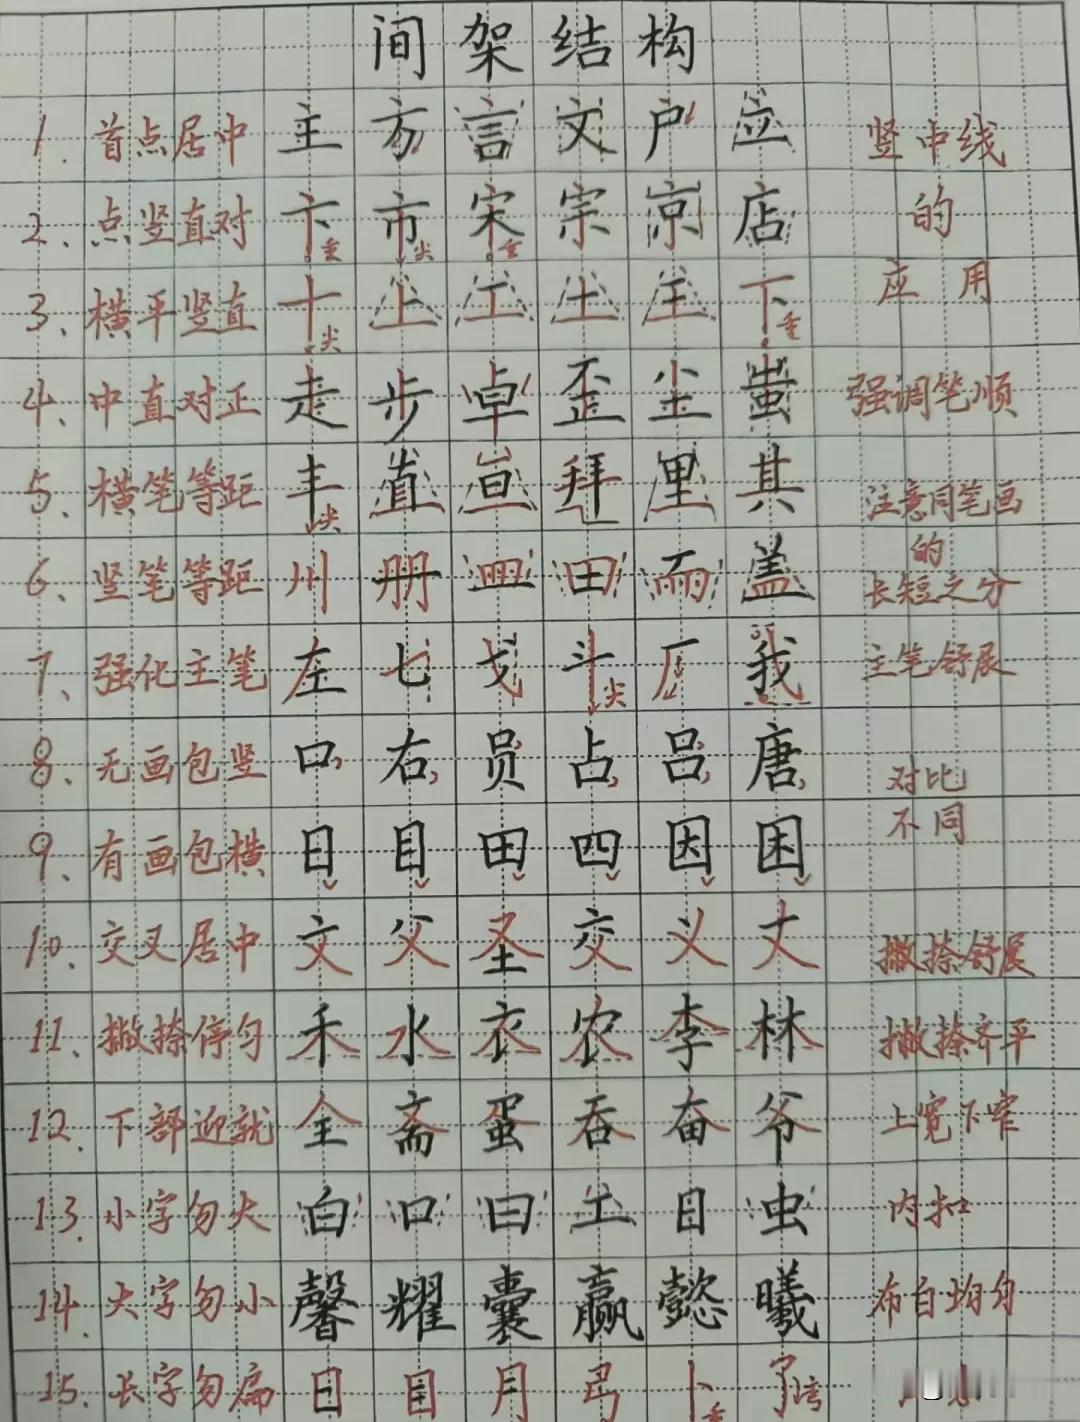 间架结构
1. 首点居中 主 方 言 文 户 应 竖中线
2. 点竖直对 卞 市 宋 宗 京 店 的
垂 尖 垂
3. 横平竖直 十 上 工 土 王 下 应用
尖 垂
4. 中直对正 走 步 卓 歪 尘 蚩 强调笔顺
5. 横笔等距 丰 直 亘 拜 里 其 注意同笔画
尖 的
6. 竖笔等距 州 册 皿 田 而 盖 长短之分
7. 强化主笔 左 七 戈 斗 厂 我 主笔舒展
尖
8. 无画包竖 口 右 员 占 吕 唐 对比
9. 有画包横 日 目 田 四 因 困 不同
10. 交叉居中 文 父 圣 交 义 丈 撇捺舒展
11. 撇捺停匀 禾 水 衣 农 李 林 撇捺齐平
12. 下部迎就 全 斋 蛋 吞 奋 爷 上宽下窄
13. 小字勿大 白 口 曰 土 日 虫 内扣
14. 大字勿小 馨 耀 囊 赢 懿 曦 布白均匀
15. 长字勿扁 日 目 月 弓 卜 了
垂